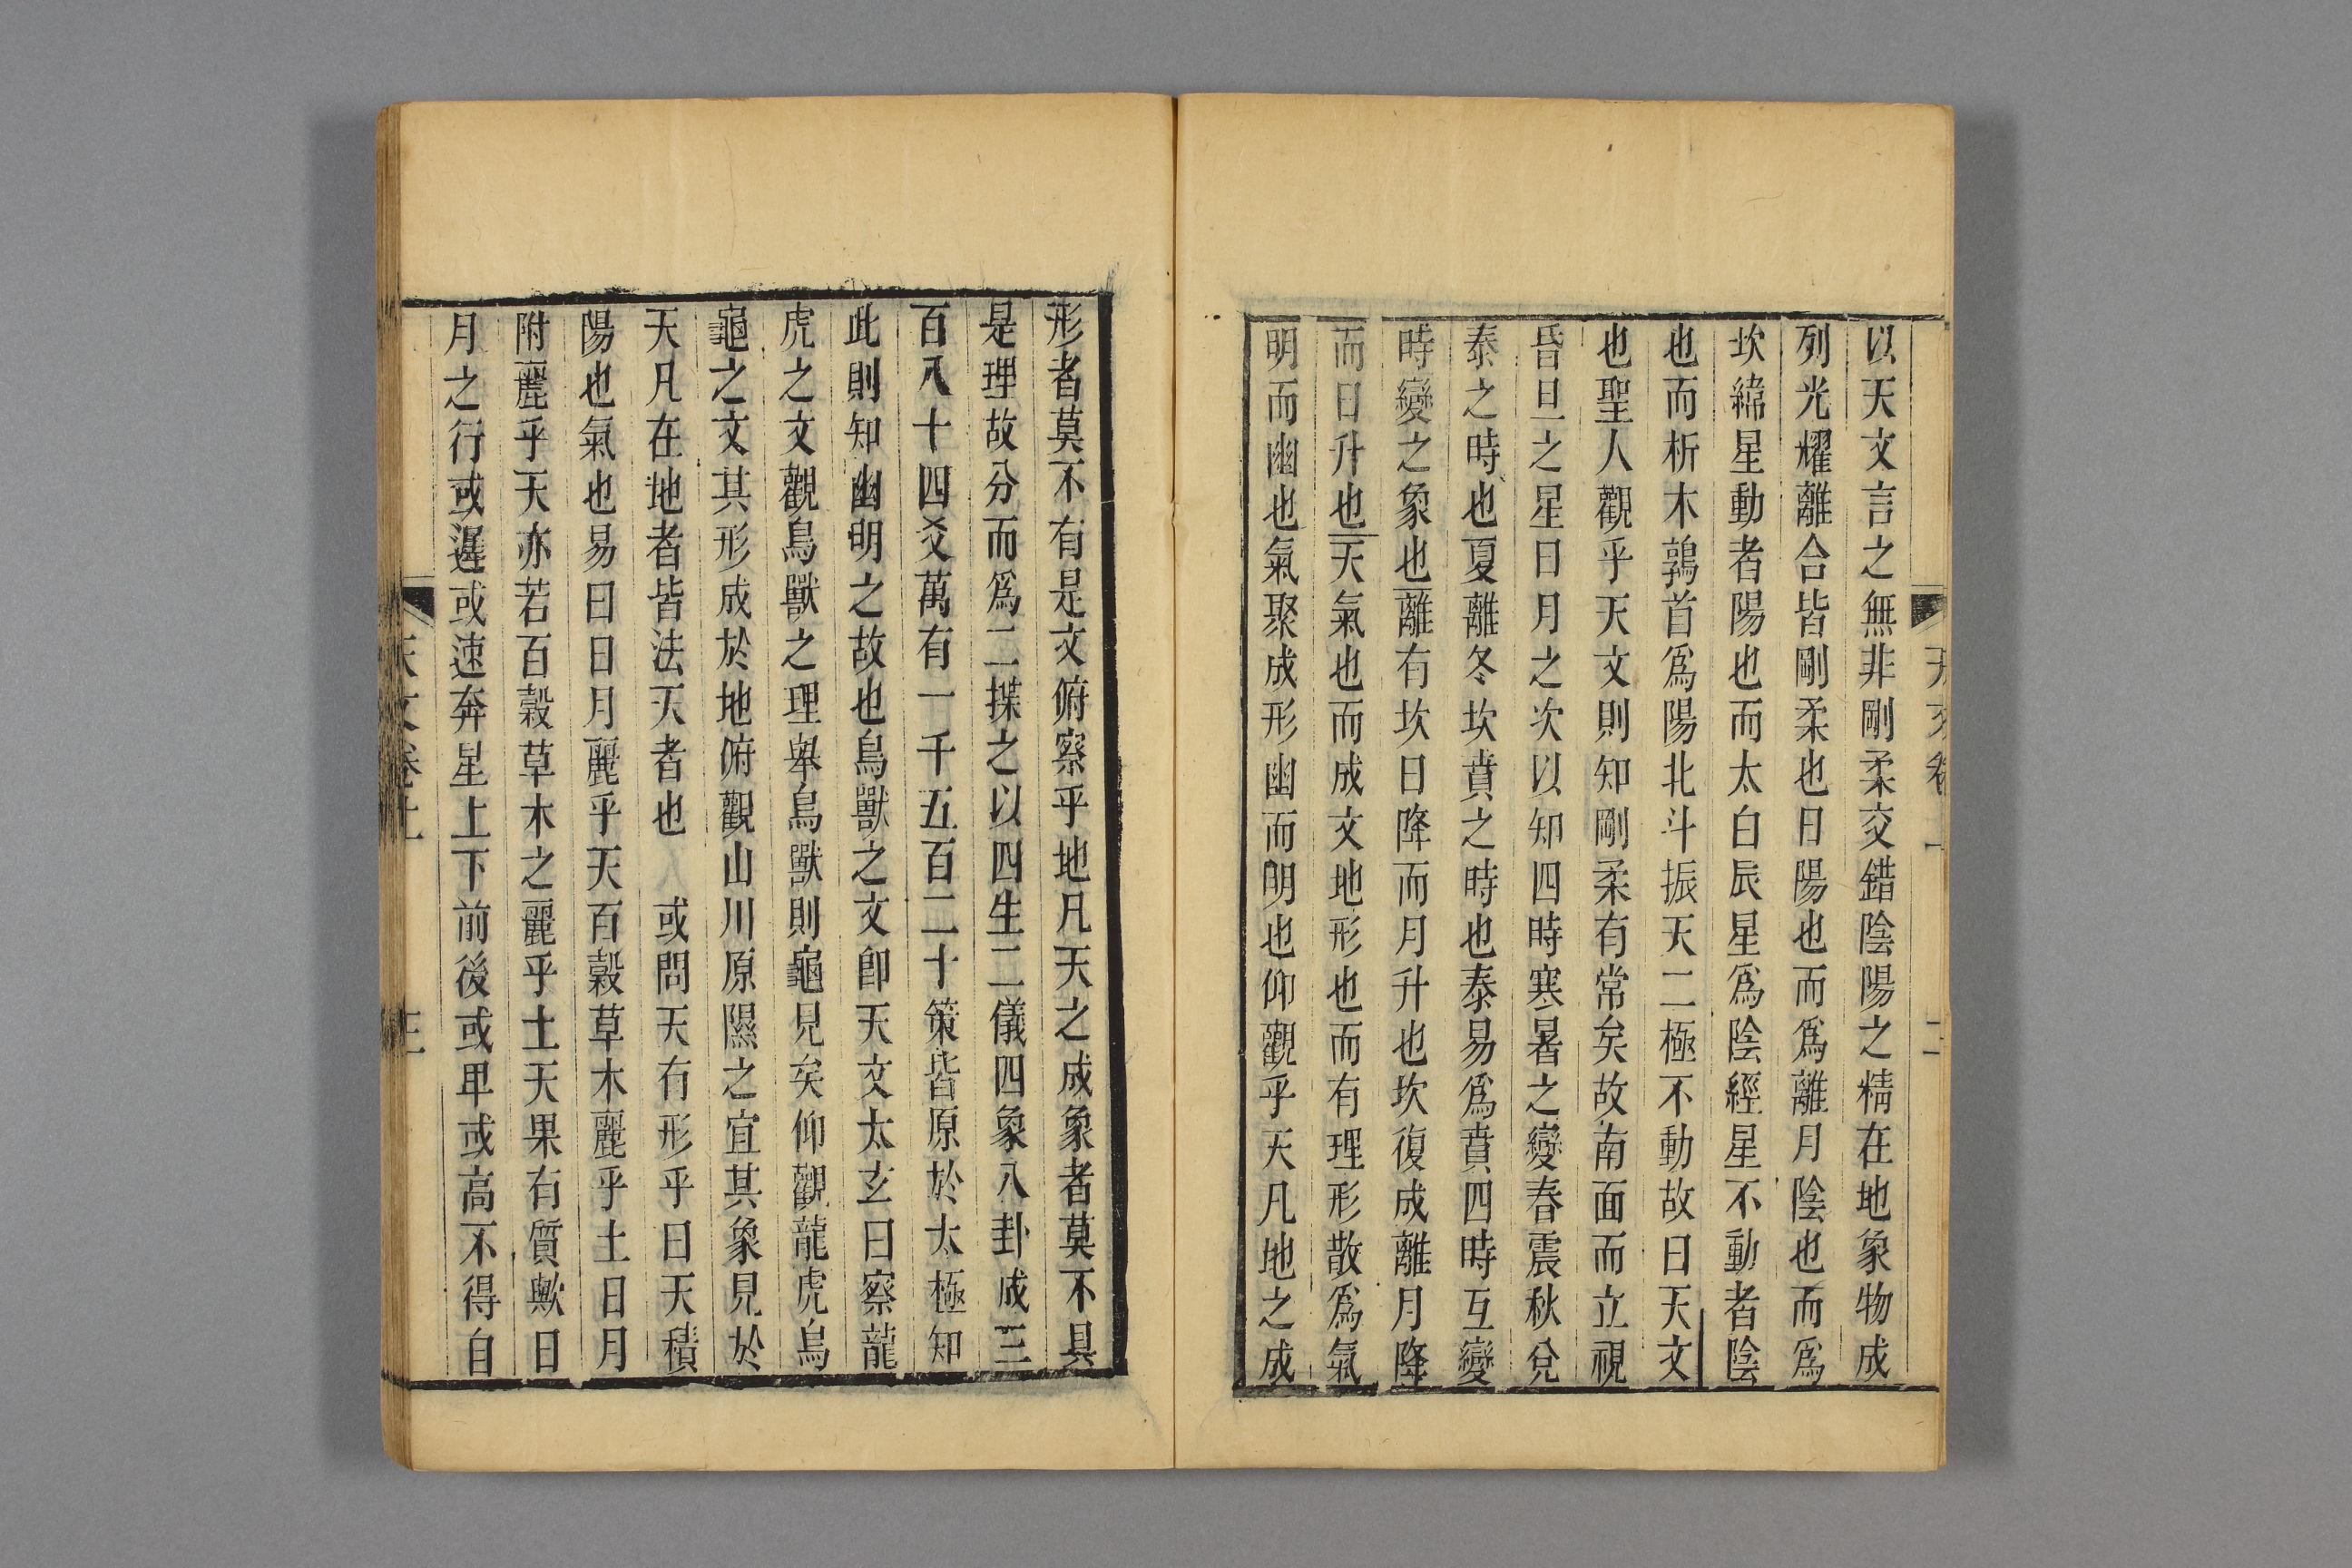 以天文言之無非剛柔交錯陰陽之精在地象物成
列光耀離合皆剛柔也日陽也而爲離月陰也而爲
坎緯星動者陽也而太白辰星爲陰經星不動者陰
也而析木鶉首爲陽北斗振天二極不動故曰天文
也聖人觀乎天文則知剛柔有常矣故南面而立視
昏旦之星日月之次以知四時寒暑之變春震秋兌
泰之時也夏離冬坎賁之時也泰易爲賁四時互變
時變之象也離有坎日降而月升也坎復成離月降
而日升也天氣也而成文地形也而有理形散爲氣
明而幽也氣聚成形幽而明也仰觀乎天凡地之成
形者莫不有是文俯察乎地凡天之成象者莫不具
是理故分而爲二揲之以四生二儀四象八卦成三
百八十四爻萬有一千五百二十策皆原於太極知
此則知幽明之故也鳥獸之文卽天文太玄曰察龍
虎之文觀鳥獸之理舉鳥獸則龜見矣仰觀龍虎鳥
龜之文其形成於地俯觀山川原隰之宜其象見於
天凡在地者皆法天者也　或問天有形乎曰天積
陽也氣也易曰日月麗乎天百穀草木麗乎土日月
附麗乎天亦若百穀草木之麗乎土天果有質歟日
月之行或遲或速奔星上下前後或卑或高不得自
天文卷上
三